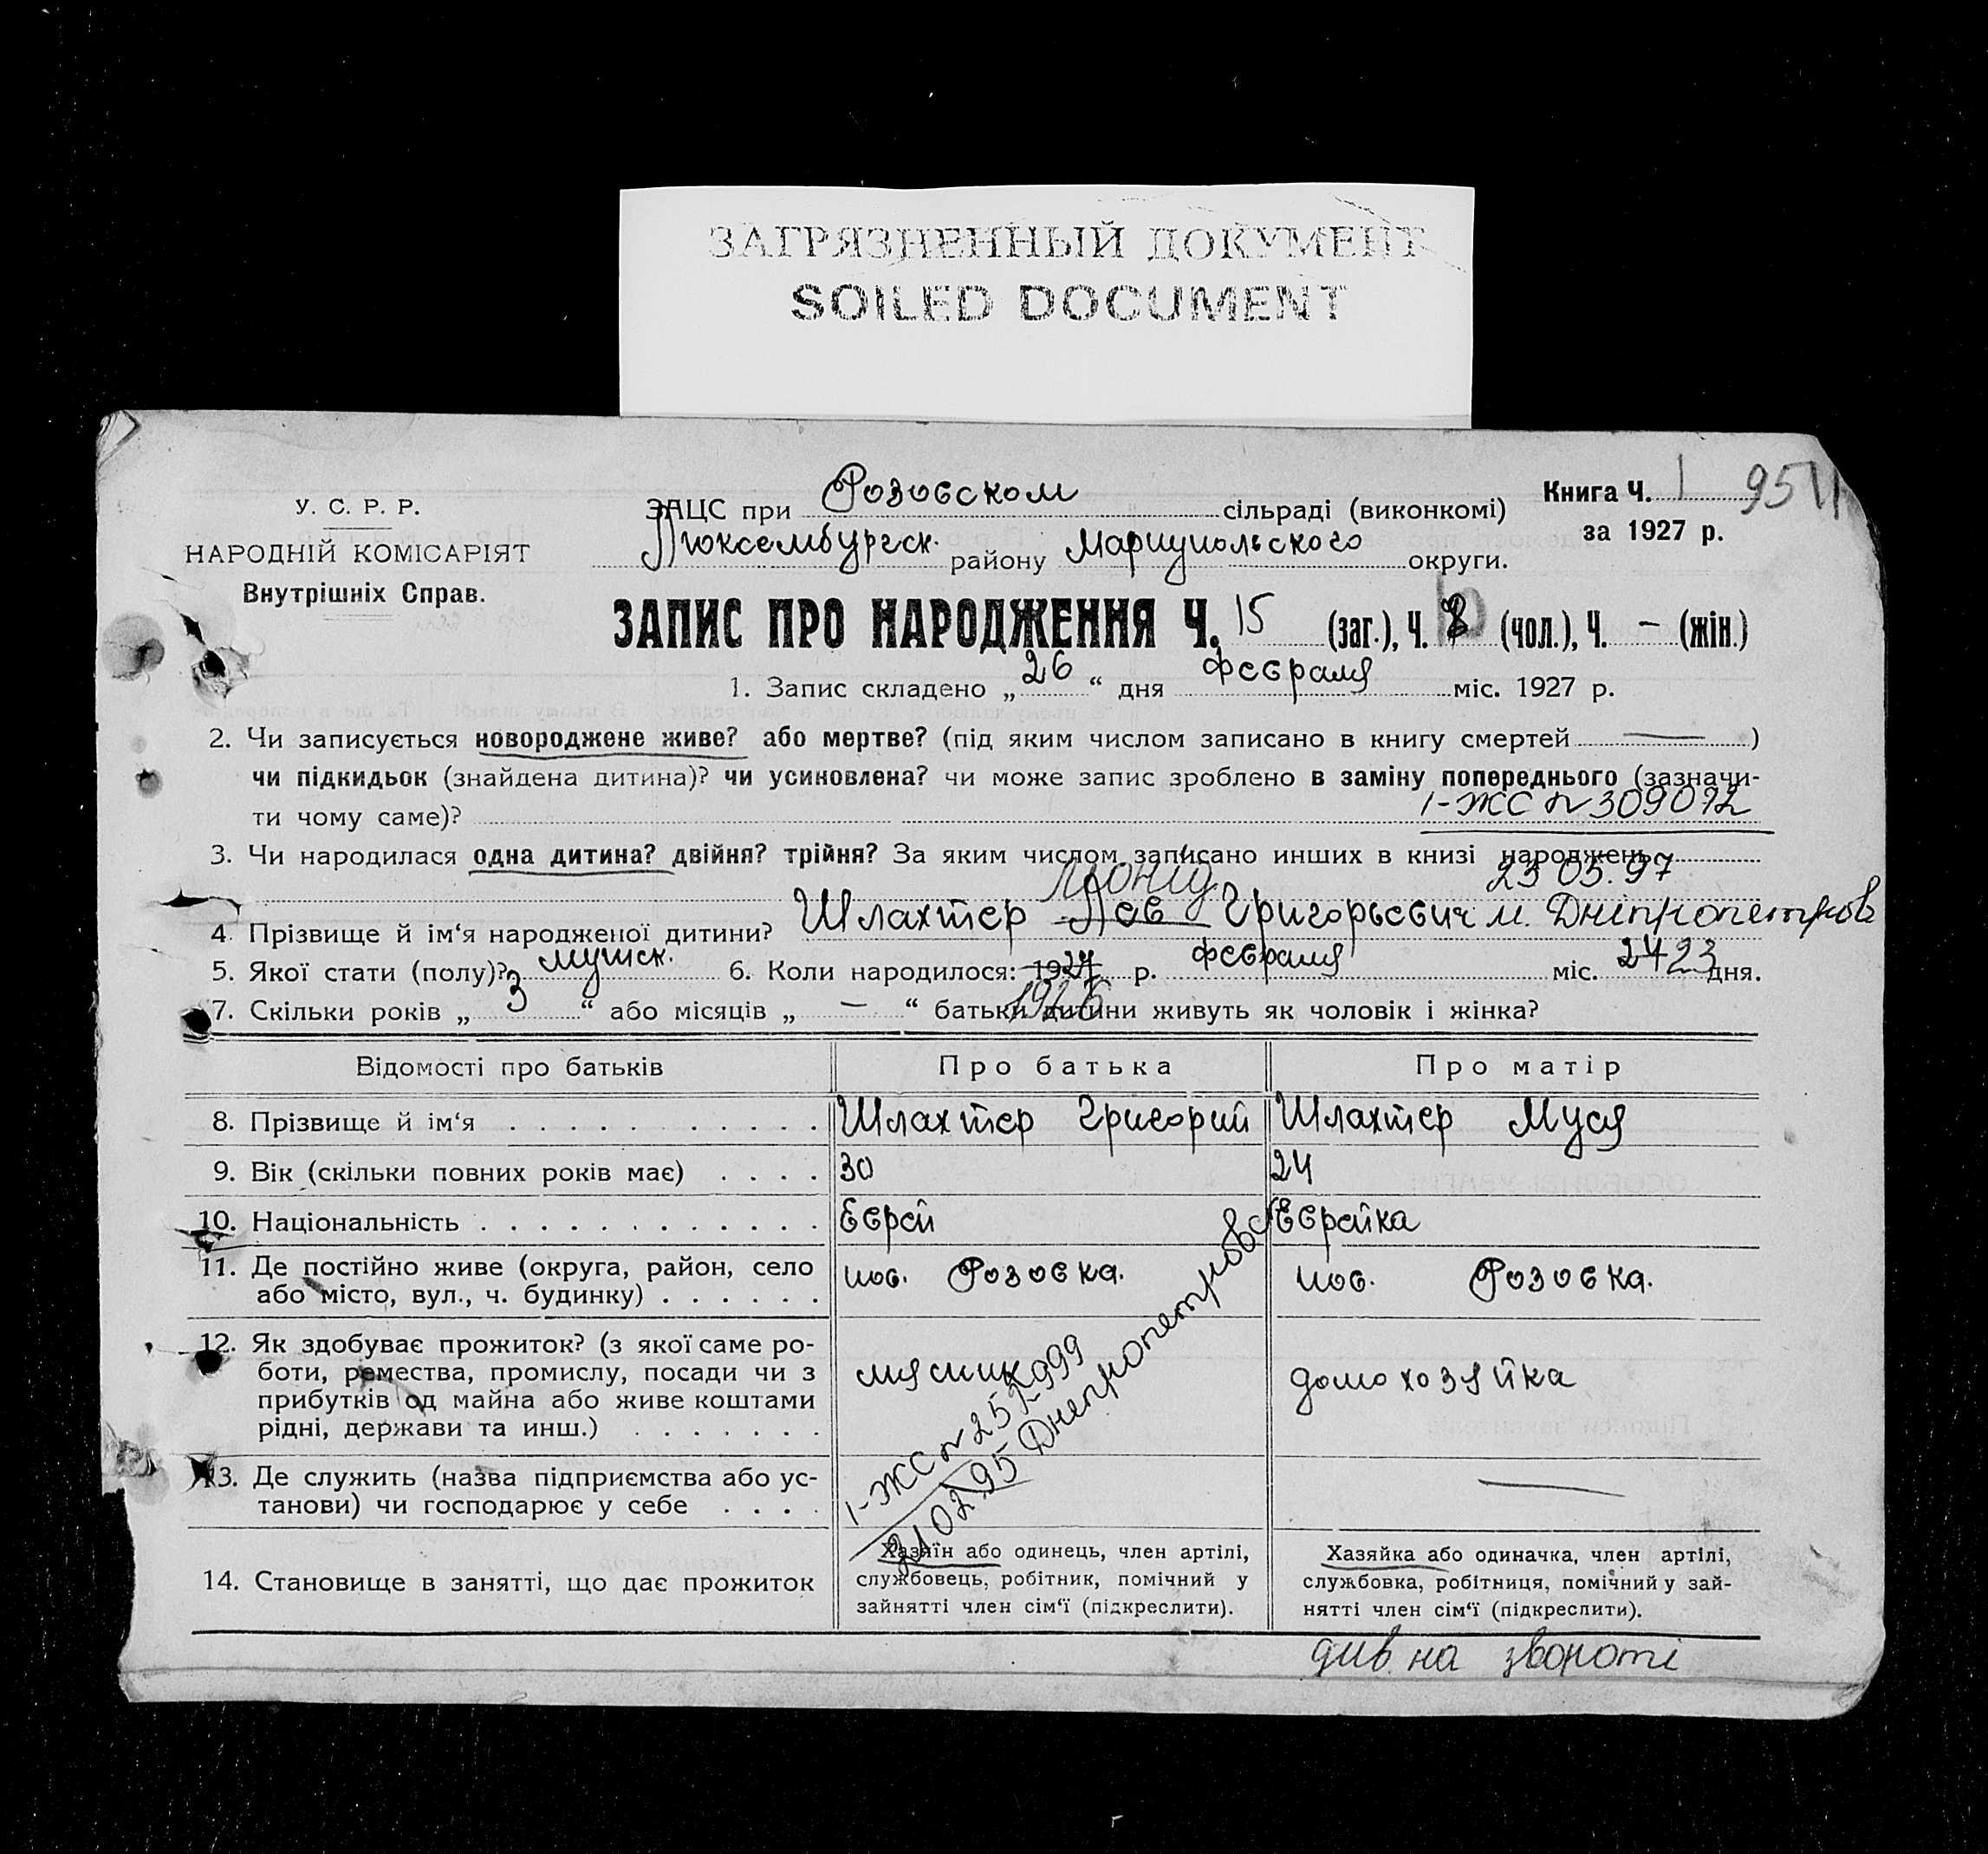 ЗАГРЯЗНЕННЫЙ ДОКУМЕНТ
SOILED DOCUMENT
У. С. Р. Р.
НАРОДНІЙ КОМІСАРІЯТ
Внутрішніх Справ.
ЗАЦС при Розовском сільраді (виконкомі)
Люксембургск. району Мариупольского округи.
Книга Ч. 1 95
за 1927 р.
ЗАПИС ПРО НАРОДЖЕННЯ Ч. 15 (заг.), Ч. 8 (чол.), Ч. — (жін.)
1. Запис складено „ 26 “ дня февраля міс. 1927 р.
2. Чи записується новороджене живе? або мертве? (під яким числом записано в книгу смертей — )
чи підкидьок (знайдена дитина)? чи усиновлена? чи може запис зроблено в заміну попереднього (зазначи-
ти чому саме)? I-ЖС № 309072
3. Чи народилася одна дитина? двійня? трійня? За яким числом записано инших в книзі народжень
Леонід 23 05. 97
4. Прізвище й ім‘я народженої дитини? Шлахтер Лев Григорьевич м. Дніпропетровс
5. Якої стати (полу)? мужск. 6. Коли народилося: 1927 р. февраля міс. 24 23 дня.
1926
7. Скільки років „ 3 “ або місяців „ — “ батьки дитини живуть як чоловік і жінка?
Відомості про батьків Про батька Про матір
8. Прізвище й ім‘я . . . . . . . . . . . Шлахтер Григорий Шлахтер Муся
9. Вік (скільки повних років має) . . . . 30 24
10. Національність . . . . . . . . . . . . Еврей Еврейка
11. Де постійно живе (округа, район, село
або місто, вул., ч. будинку) . . . . . . пос. Розовка. пос. Розовка.
12. Як здобуває прожиток? (з якої саме ро-
боти, ремества, промислу, посади чи з
прибутків од майна або живе коштами
рідні, держави та инш.) . . . . . . .
мясник домохозяйка
I-ЖС № 252999
21 02 95 Днепропетровс
13. Де служить (назва підприємства або ус-
танови) чи господарює у себе . . . . —
14. Становище в занятті, що дає прожиток
Хазяїн або одинець, член артілі,
службовець, робітник, помічний у
зайнятті член сім‘ї (підкреслити).
Хазяйка або одиначка, член артілі,
службовка, робітниця, помічний у зай-
нятті член сім‘ї (підкреслити).
див. на звороті